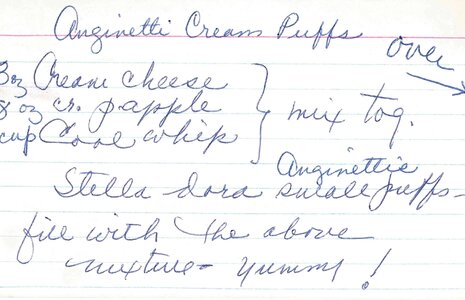 Anginetti Cream Puffs
over
3oz Cream cheese
8 oz cr. papple
cup Cool whip
mix tog.
Anginettie
Stella dora small puffs-
fill with the above
mixture- yummy!